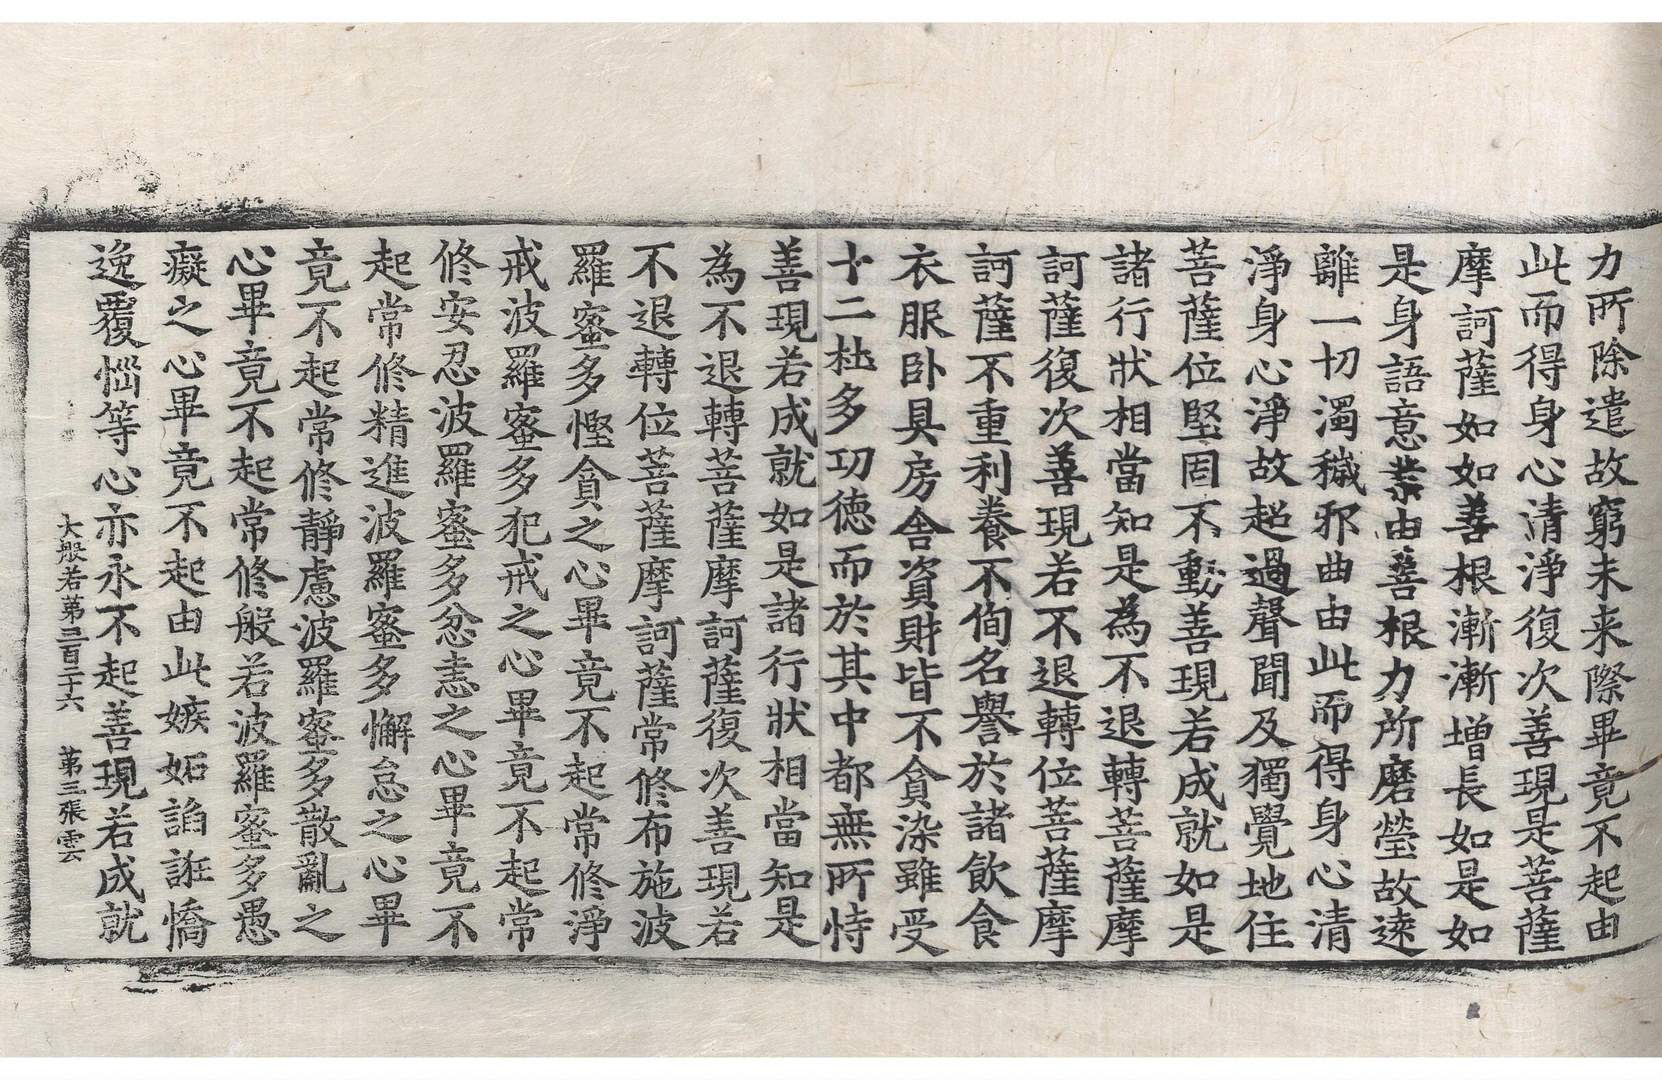 力所除遣故窮未来際畢竟不起由
此而得身心清淨復次善現是菩薩
摩訶薩如如善根漸漸增長如是如
是身語意業由善根力所磨瑩故遠
離一切濁穢邪曲由此而得身心清
淨身心淨故超過聲聞及獨覺地住
菩薩位堅固不動善現若成就如是
諸行狀相當知是為不退轉菩薩摩
訶薩復次善現若不退轉位菩薩摩
訶薩不重利養不徇名譽於諸飲食
衣服卧具房舍資財皆不貪染雖受
十二杜多功德而於其中都無所恃
善現若成就如是諸行狀相當知是
為不退轉菩薩摩訶薩復次善現若
不退轉位菩薩摩訶薩常修布施波
羅蜜多慳貪之心畢竟不起常修淨
戒波羅蜜多犯戒之心畢竟不起常
修安忍波羅蜜多忿恚之心畢竟不
起常修精進波羅蜜多懈怠之心畢
竟不起常修靜慮波羅蜜多散亂之
心畢竟不起常修般若波羅蜜多愚
癡之心畢竟不起由此嫉妬諂誑憍
逸覆惱等心亦永不起善現若成就
大般若第三百二十六 第三張 雲